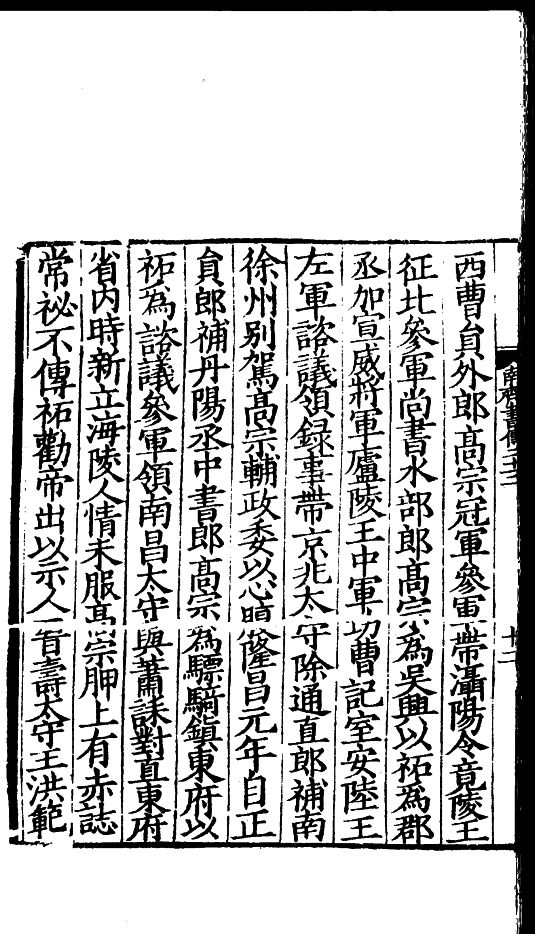 西曹貟外郎髙宗冠軍叅軍帶灄陽令竟陵王
征北叅軍尚書水部郎髙宗為吳興以祏為郡
丞加宣威將軍廬陵王中軍功曹記室安陸王
左軍諮議領録事帶京兆太守除通直郎補南
徐州別駕髙宗輔政委以心腹隆昌元年自正
貟郎補丹陽丞中書郎髙宗為驃騎鎮東府以
祏為諮議叅軍領南昌太守與蕭誄對直東府
省内時新立海陵人情未服髙宗胛上有赤誌
常祕不傳祏勸帝出以示人晉壽太守王洪範
南齊書傳二十三
十二